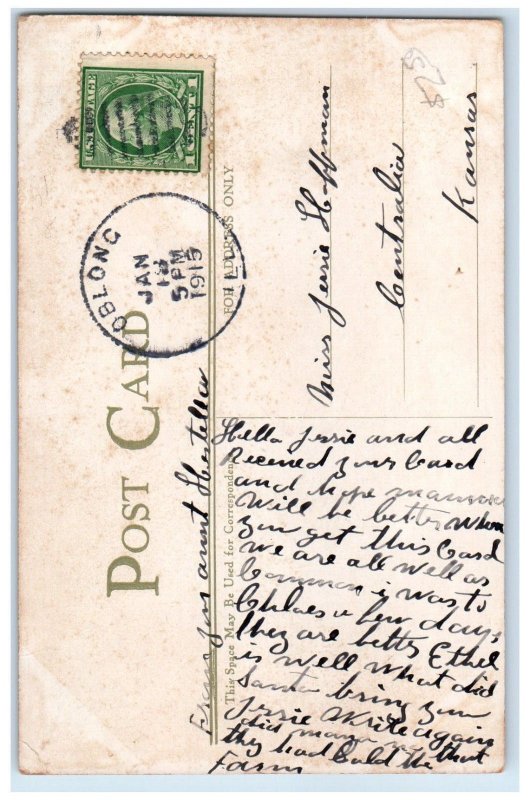 $25
U.S. POSTAGE
1 CENT 1
OBLONG
JAN
5 PM
1915
ILL
POST CARD
FOR ADDRESS ONLY
This Space May Be Used for Correspondence
Miss Jessie Hoffman
Centralia
Kansas
Hello Jessie and all
Received your Card
and hope
will be better when
you get this Card
we are all well as
Common i was to
Chloes a few days
they are better Ethel
is well What did
Santa bring you
Jessie Write again
did mama
they had Sold the
Farm
From your aunt